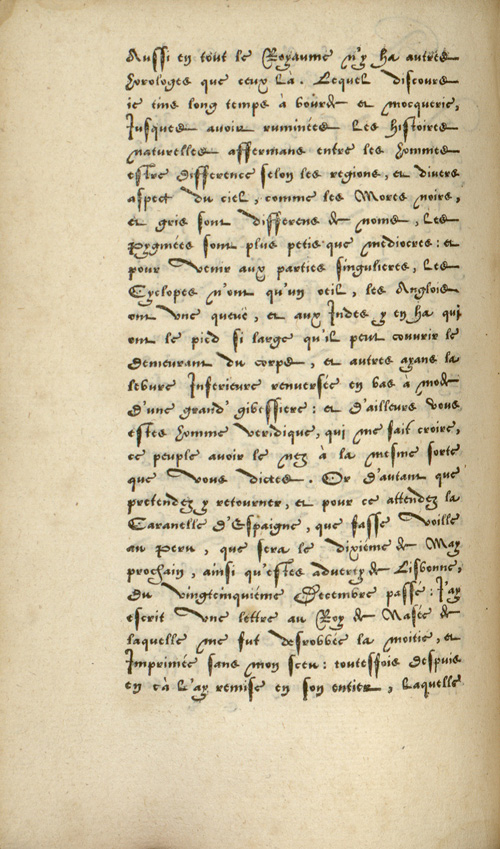 Aussi en tout le Royaume n'y ha autres
horologes que ceux là. Lequel discours
ie tins long temps à bourde et mocquerie,
Jusques avoir ruminées les histoires
naturelles affermans entre les hommes
estre difference selon les regions, et divers
aspect du ciel, comme les Mores noirs,
et gris sont differens de noms, les
Pygmées sont plus petis que mediocres: et
pour venir aux parties singulieres, les
Cyclopes n'ont qu'un oeil, les Anglois
ont une queuë, et aux Indes y en ha qui
ont le pied si large qu'il peut couvrir le
demeurant du corps, et autres ayans la
lebure Inferieure renversée en bas à mode
d'une grand' gibessiere: et d'ailleurs vous
estes homme veridique, qui me fait croire,
ce peuple avoir le nez à la mesme sorte
que vous dictes. Or d'autant que
pretendez y retourner, et pour ce attendez la
Caravelle d'Espaigne, que fasse voille
au Peru, que sera le dixiéme de May
prochain, ainsi qu'estes adverty de Lisbonne,
du vingtcinquiéme Decembre passé: J'ay
escrit une lettre au Roy de de
laquelle me fut desrobbée la moitié, et
Imprimée sans mon sceu: toutesfois despuis
en çà l'ay remise en son entier, laquelle